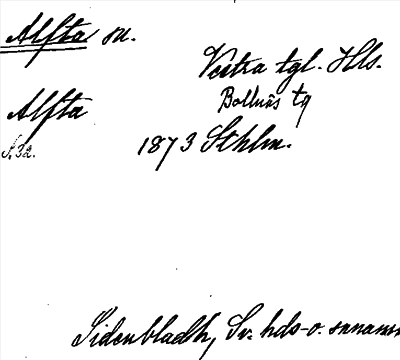 Alfta sn.
Västra tgl. Hls.
Bollnäs tg
Alfta
s. 32.
1873 Sthlm.
Sidenbladh, Sv. hds- o. snnamn